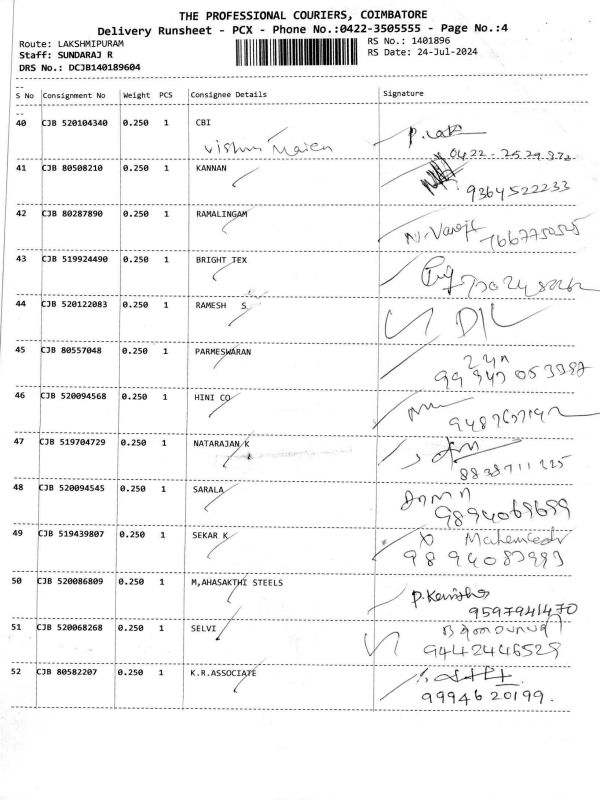 THE PROFESSIONAL COURIERS, COIMBATORE
Delivery Runsheet - PCX - Phone No.:0422-3505555 - Page No.:4
Route: LAKSHMIPURAM RS No.: 1401896
Staff: SUNDARAJ R RS Date: 24-Jul-2024
DRS No.: DCJB140189604
S No Consignment No Weight PCS Consignee Details Signature
40 CJB 520104340 0.250 1 CBI
0422-
41 CJB 80508210 0.250 1 KANNAN
9364522233
42 CJB 80287890 0.250 1 RAMALINGAM
43 CJB 519924490 0.250 1 BRIGHT TEX
44 CJB 520122083 0.250 1 RAMESH S
45 CJB 80557048 0.250 1 PARMESWARAN
46 CJB 520094568 0.250 1 HINI CO
47 CJB 519704729 0.250 1 NATARAJAN K
8838711225
48 CJB 520094545 0.250 1 SARALA
49 CJB 519439807 0.250 1 SEKAR K
50 CJB 520086809 0.250 1 M,AHASAKTHI STEELS
9597941470
51 CJB 520068268 0.250 1 SELVI
9442446529
52 CJB 80582207 0.250 1 K.R.ASSOCIATE
9994620199.